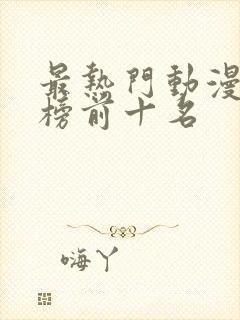 最熱門動漫
榜前十名
嗨丫